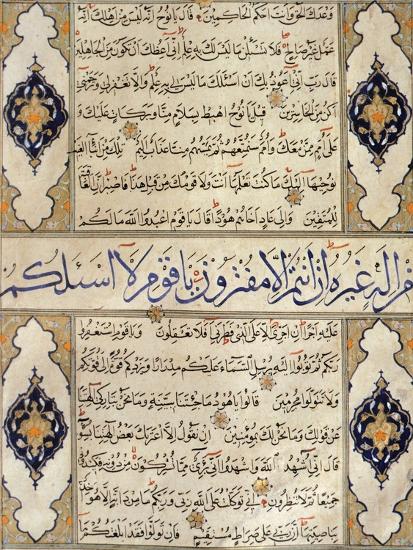 وعدك الحق وانت احكم الحاكمين قال يا نوح انه ليس من اهلك انه
عمل غير صالح فلا تسئلن ما ليس لك به علم اني اعظك ان تكون من الجاهلين
قال رب اني اعوذ بك ان اسئلك ما ليس لي به علم والا تغفر لي وترحمني
اكن من الخاسرين قيل يا نوح اهبط بسلام منا وبركات عليك و
على امم ممن معك وامم سنمتعهم ثم يمسهم منا عذاب اليم تلك من انباء الغيب
نوحيها اليك ما كنت تعلمها انت ولا قومك من قبل هذا فاصبر ان العاقبة
للمتقين والى عاد اخاهم هودا قال يا قوم اعبدوا الله ما لكم
من اله غيره ان انتم الا مفترون يا قوم لا اسئلكم
عليه اجرا ان اجري الا على الذي فطرني افلا تعقلون ويا قوم استغفروا
ربكم ثم توبوا اليه يرسل السماء عليكم مدرارا ويزدكم قوة الى قوتكم
ولا تتولوا مجرمين قالوا يا هود ما جئتنا ببينة وما نحن بتاركي الهتنا
عن قولك وما نحن لك بمؤمنين ان نقول الا اعتراك بعض الهتنا بسوء
قال اني اشهد الله واشهدوا اني بريء مما تشركون من دونه فكيدوني
جميعا ثم لا تنظرون اني توكلت على الله ربي وربكم ما من دابة الا هو اخذ
بناصيتها ان ربي على صراط مستقيم فان تولوا فقد ابلغتكم ما